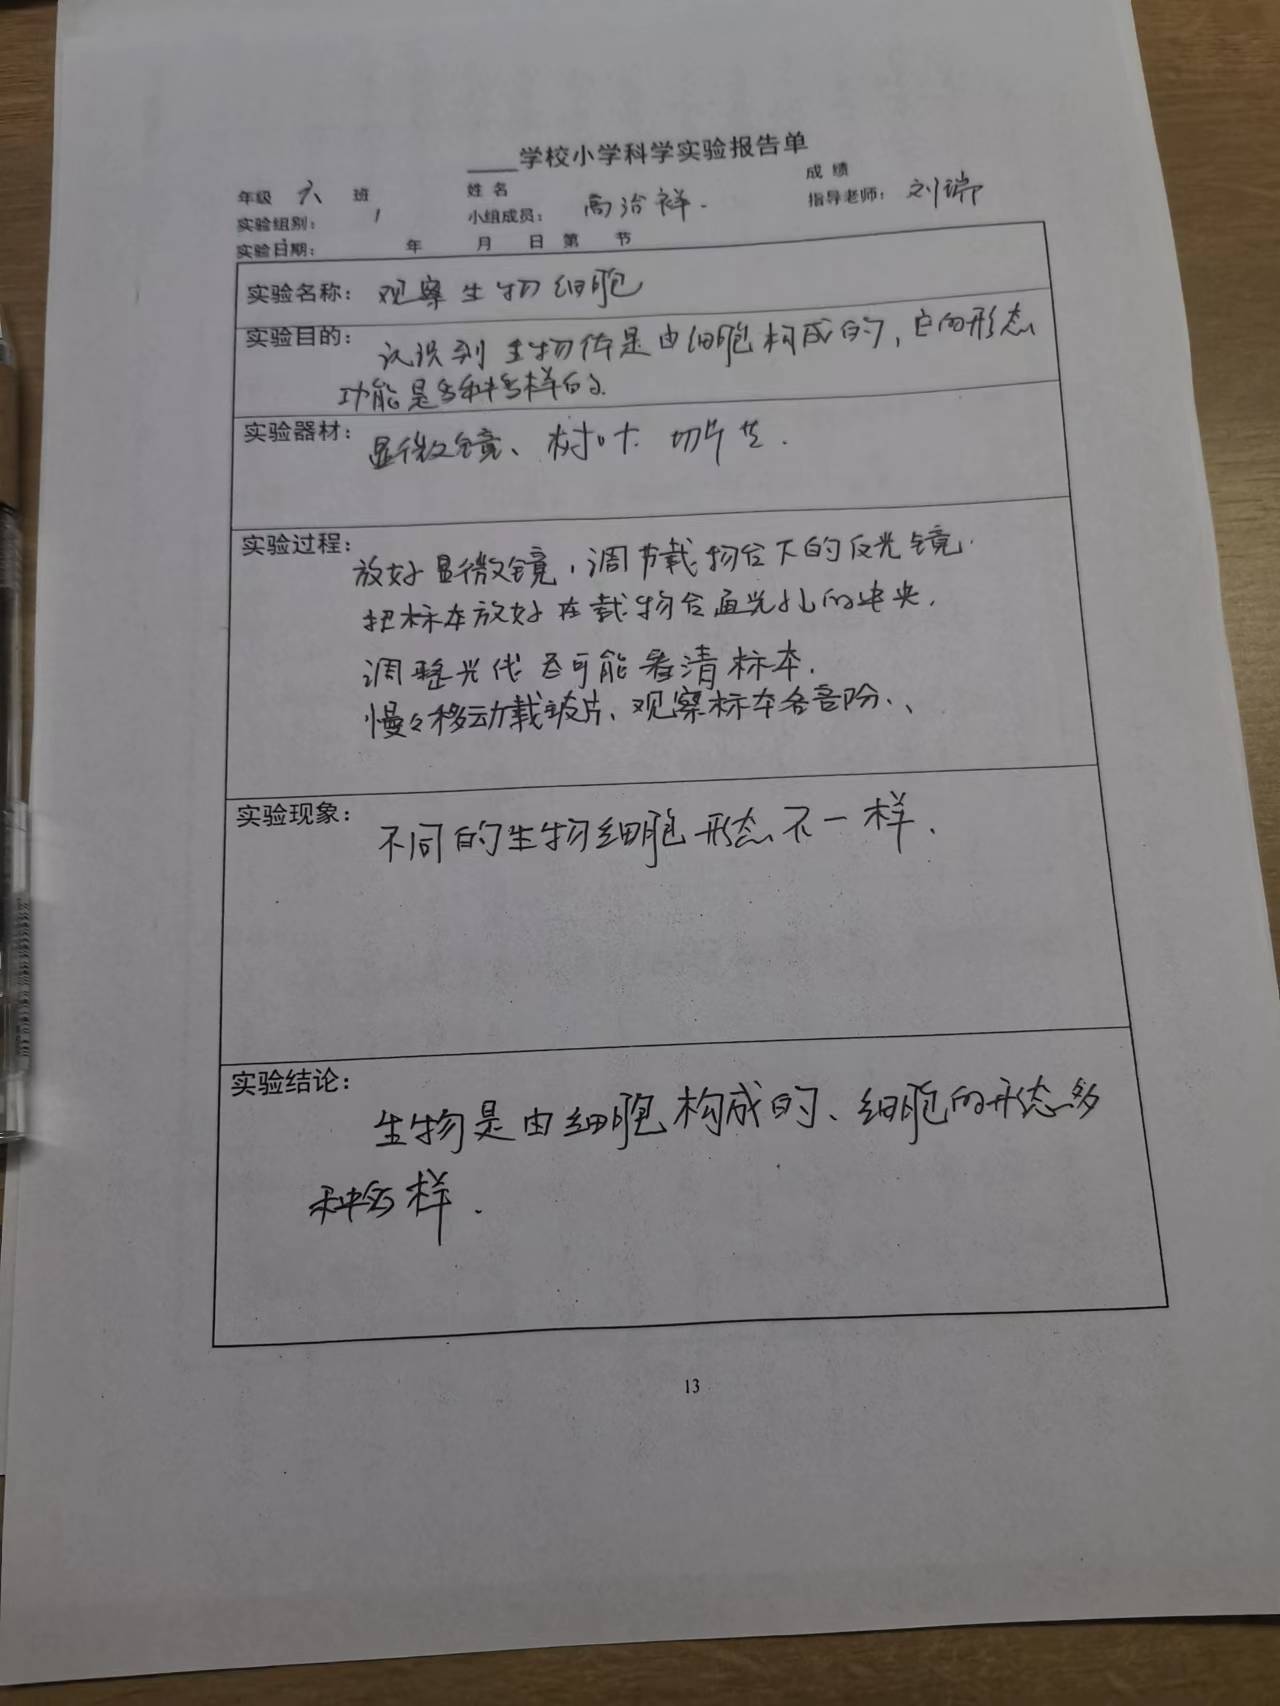 ____学校小学科学实验报告单
年级 六 班 姓名 成绩
实验组别： 1 小组成员： 高治祥. 指导老师： 刘端
实验日期： 年 月 日 第 节
实验名称： 观察生物细胞
实验目的： 认识到 生物体是由细胞构成的，它的形态
功能是多种多样的.
实验器材： 显微镜、树叶 切片 艹.
实验过程： 放好显微镜，调节载物台下的反光镜.
把标本放好在载物台通光孔的中央.
调整光 尽可能看清标本.
慢々移动载玻片、观察标本各部分、、
实验现象： 不同的生物细胞形态不一样.
实验结论：
生物是由细胞构成的、细胞的形态多
种多样.
13